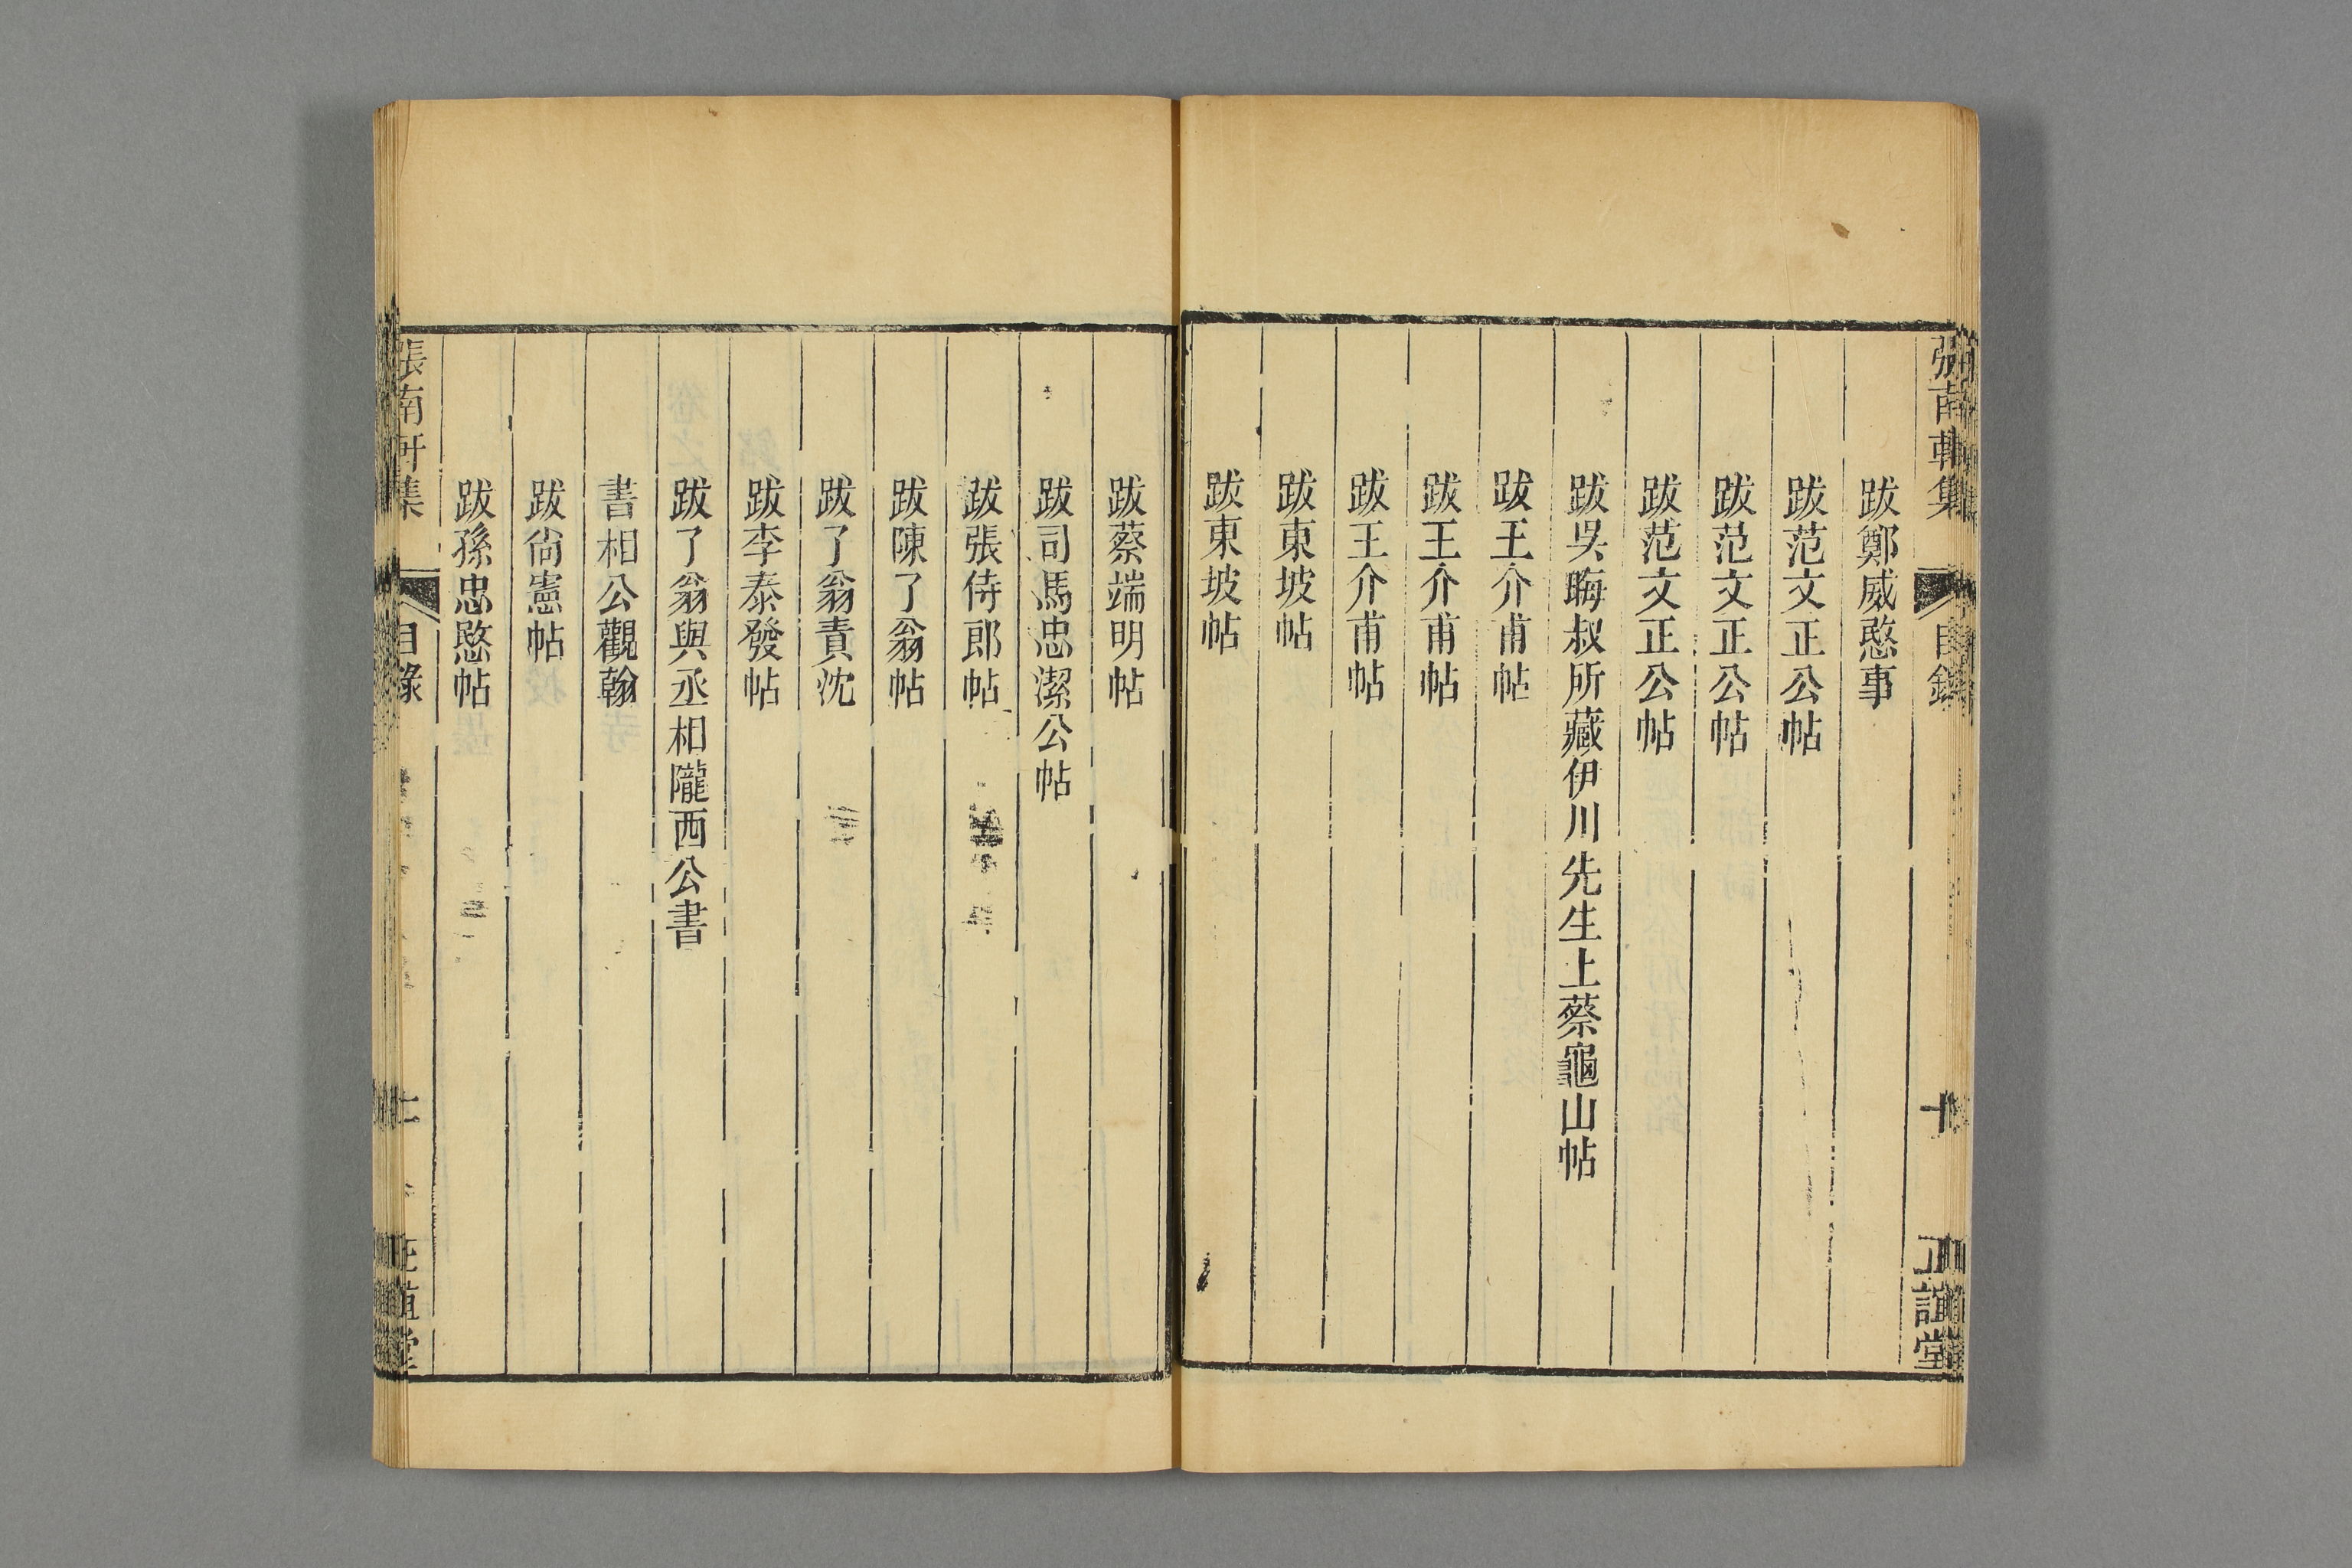 張南軒集 目錄 十 正誼堂
跋鄭威愍事
跋范文正公帖
跋范文正公帖
跋范文正公帖
跋吳晦叔所藏伊川先生上蔡龜山帖
跋王介甫帖
跋王介甫帖
跋王介甫帖
跋東坡帖
跋東坡帖
跋蔡端明帖
跋司馬忠潔公帖
跋張侍郎帖
跋陳了翁帖
跋了翁責沈
跋李泰發帖
跋了翁與丞相隴西公書
書相公觀翰
跋尙憲帖
跋孫忠愍帖
張南軒集 目錄 正誼堂